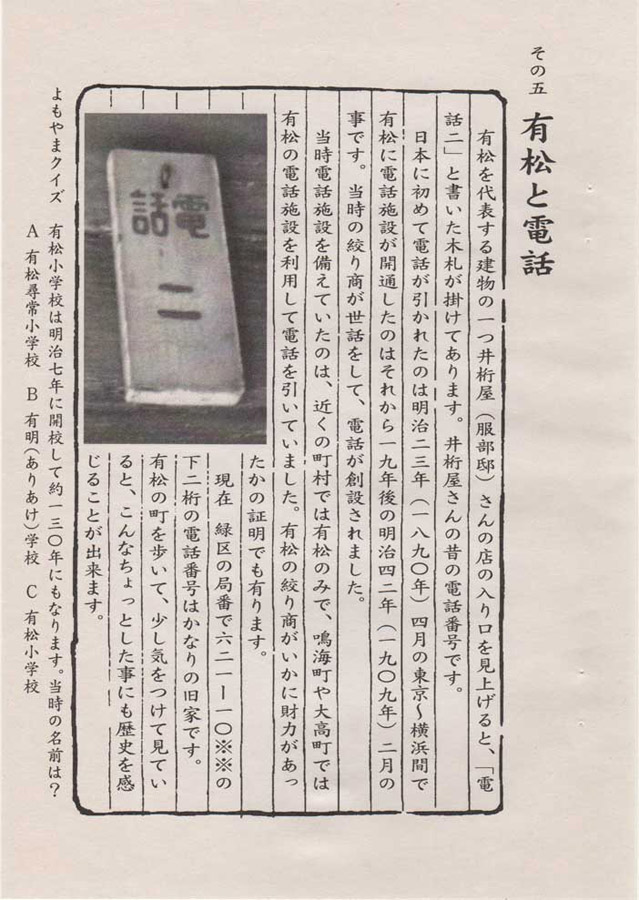 その五
有松と電話
有松を代表する建物の一つ井桁屋（服部邸）さんの店の入り口を見上げると、「電
話二」と書いた木札が掛けてあります。井桁屋さんの昔の電話番号です。
日本に初めて電話が引かれたのは明治二三年（一八九〇年）四月の東京〜横浜間で
有松に電話施設が開通したのはそれから一九年後の明治四二年（一九〇九年）二月の
事です。当時の絞り商が世話をして、電話が創設されました。
当時電話施設を備えていたのは、近くの町村では有松のみで、鳴海町や大高町では
有松の電話施設を利用して電話を引いていました。有松の絞り商がいかに財力があっ
たかの証明でも有ります。
現在　緑区の局番で六二一ー一〇※※の
下二桁の電話番号はかなりの旧家です。
有松の町を歩いて、少し気をつけて見てい
ると、こんなちょっとした事にも歴史を感
じることが出来ます。
電話
二
よもやまクイズ　有松小学校は明治七年に開校して約一三〇年にもなります。当時の名前は？
A 有松尋常小学校　B 有明（ありあけ）学校　C 有松小学校